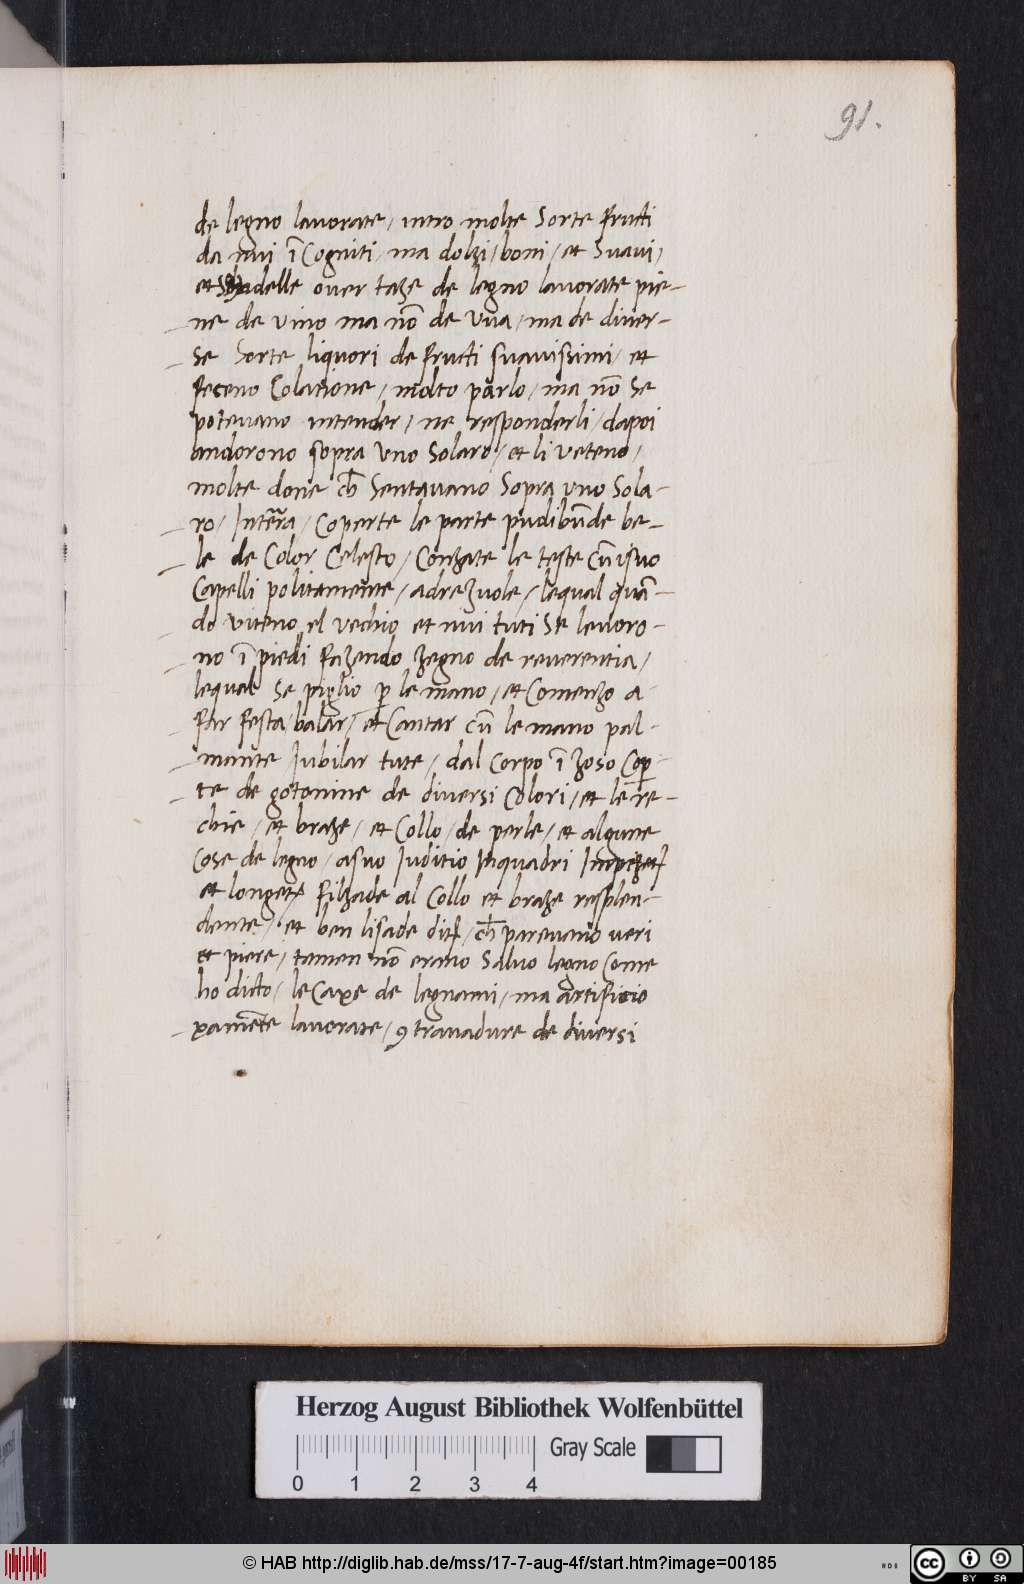 91.
de legno lavorate / intro molte Sorte fructi
da nui ĩ Cogniti / ma dolzi / boni / et Suavi /
et Scudelle over taze de legno lavorate pie-
ne de vino ma nõ de Vua / ma de diver-
se Sorte liquori de fructi suavissimi / et
feceno Colatione / molto parlo / ma nõ Se
potevano intender / ne responderli / dapoi
andorono sopra uno Solaro / et li veteno /
molte done ch̃ Sentavano Sopra uno Sola-
ro / Intẽra / Coperte le parte pudibũde be-
le de Color Celesto / Conzate le teste cũ i suo
Capelli politamente / adrezuole / lequal quã-
do viteno el vechio et nui tuti Se levoro-
no ĩ piedi fazendo zegno de reverentia /
lequal Se piglio p̱ le mano / et Comenzo a
far festa balar / et Cantar cũ le mano pal-
mante Iubilar tute / dal corpo ĩ zoso Cop̱-
te de gotonine de diversi Colori / et le re-
chie / et braze / et Collo / de perle / et algune
Cose de legno / a suo Iuditio Inquadri
et longete filzade al Collo et braze resplen-
dente / et ben lisade / ch̃ parevano veri
et piere / tamen nõ erano Salvo legno Come
ho dicto / le Caxe de legnami / ma artificio
xamẽte lavorate / 9 travadure de diversi
Herzog August Bibliothek Wolfenbüttel
Gray Scale
0 1 2 3 4
© HAB http://diglib.hab.de/mss/17-7-aug-4f/start.htm?image=00185
cc BY SA